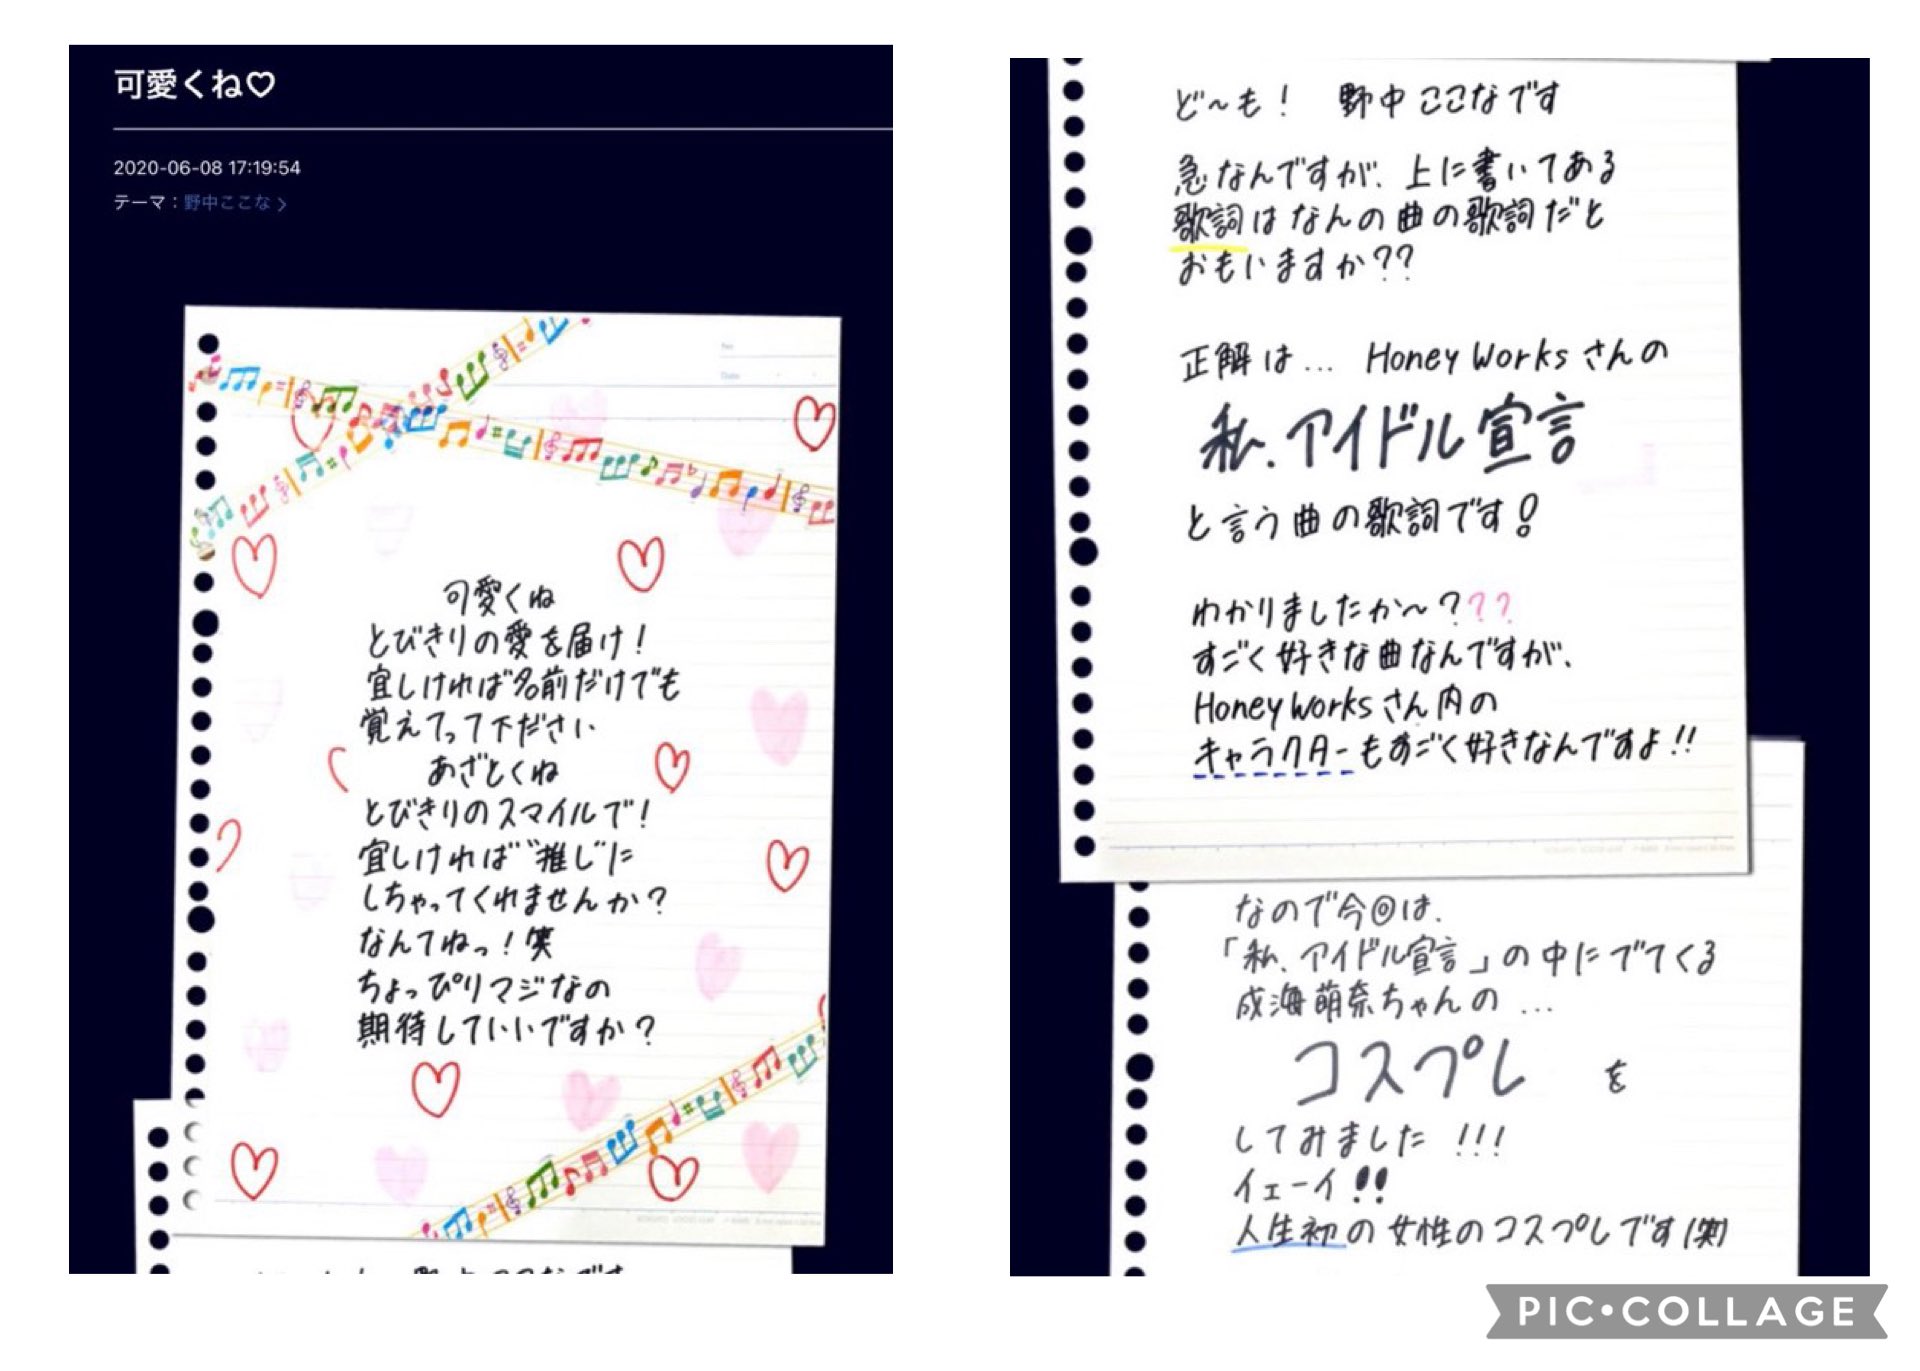 可愛くね♡
2020-06-08 17:19:54
テーマ：野中ここな >
No.
Date
可愛くね
とびきりの愛を届け！
宜しければ名前だけでも
覚えてって下ださい
あざとくね
とびきりのスマイルで！
宜しければ"推し"に
しちゃってくれませんか？
なんてねっ！笑
ちょっぴりマジなの
期待していいですか？
ど〜も！ 野中ここなです
急なんですが、上に書いてある
歌詞はなんの曲の歌詞だと
おもいますか？？
正解は... HoneyWorksさんの
私、アイドル宣言
と言う曲の歌詞です！
わかりましたか〜？？？
すごく好きな曲なんですが、
HoneyWorksさん内の
キャラクターもすごく好きなんですよ!!
なので今回は、
「私、アイドル宣言」の中にでてくる
成海萌奈ちゃんの...
コスプレ を
してみました !!!
イェーイ!!
人生初の女性のコスプレです(笑)
PIC•COLLAGE